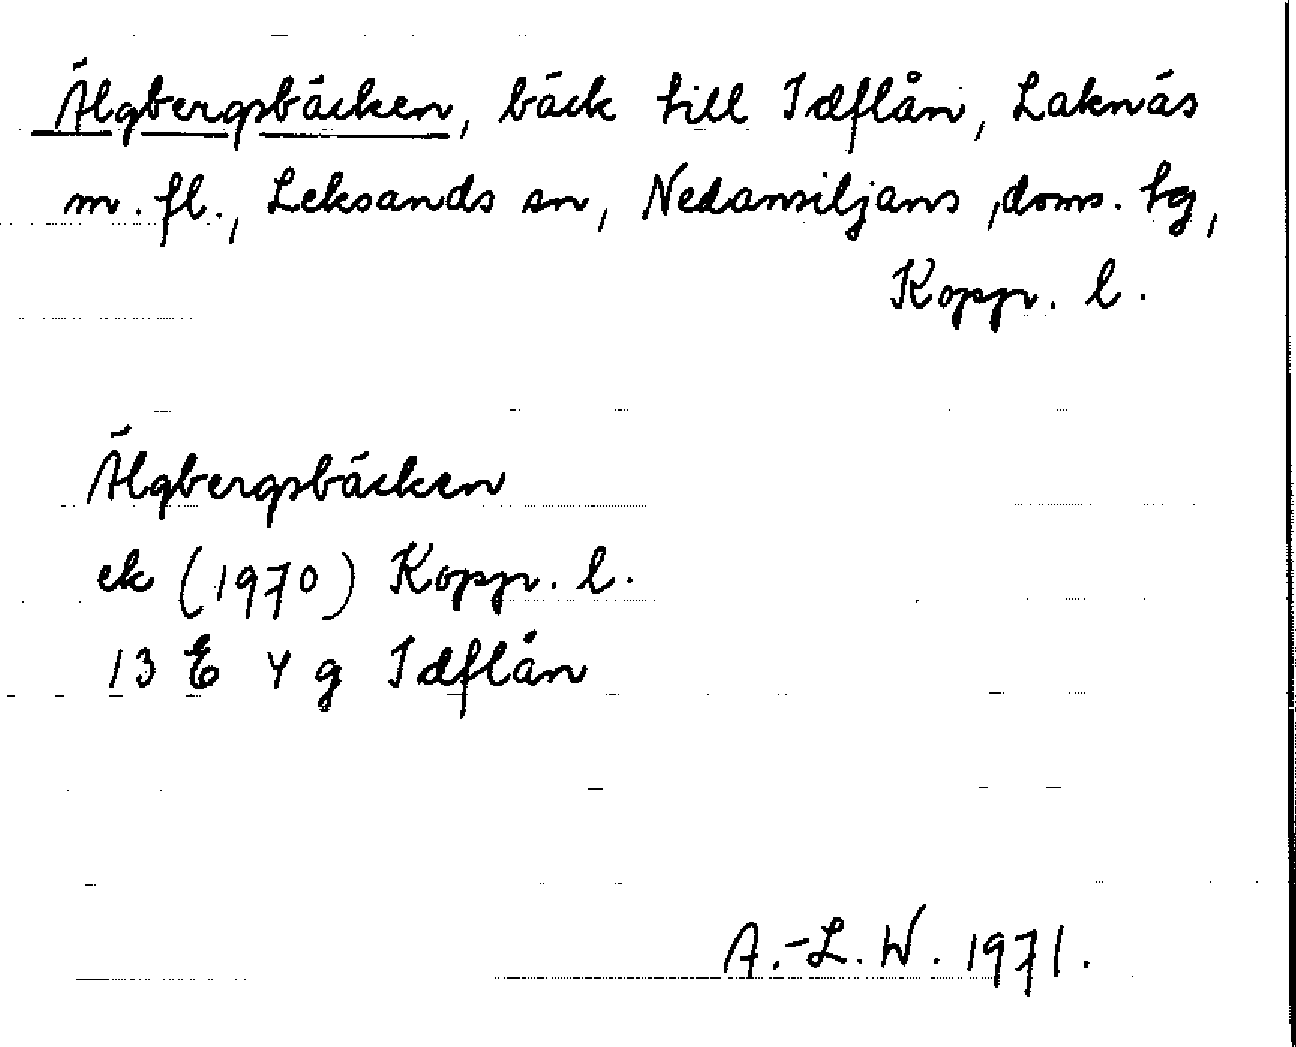 Älgbergsbäcken, bäck till Idflån, Laknäs
m. fl., Leksands sn, Nedansiljans doms. tg,
Kopp. l.
Älgbergsbäcken
ek (1970) Kopp. l.
13 E 4 g Idflån
A.-L. W. 1971.